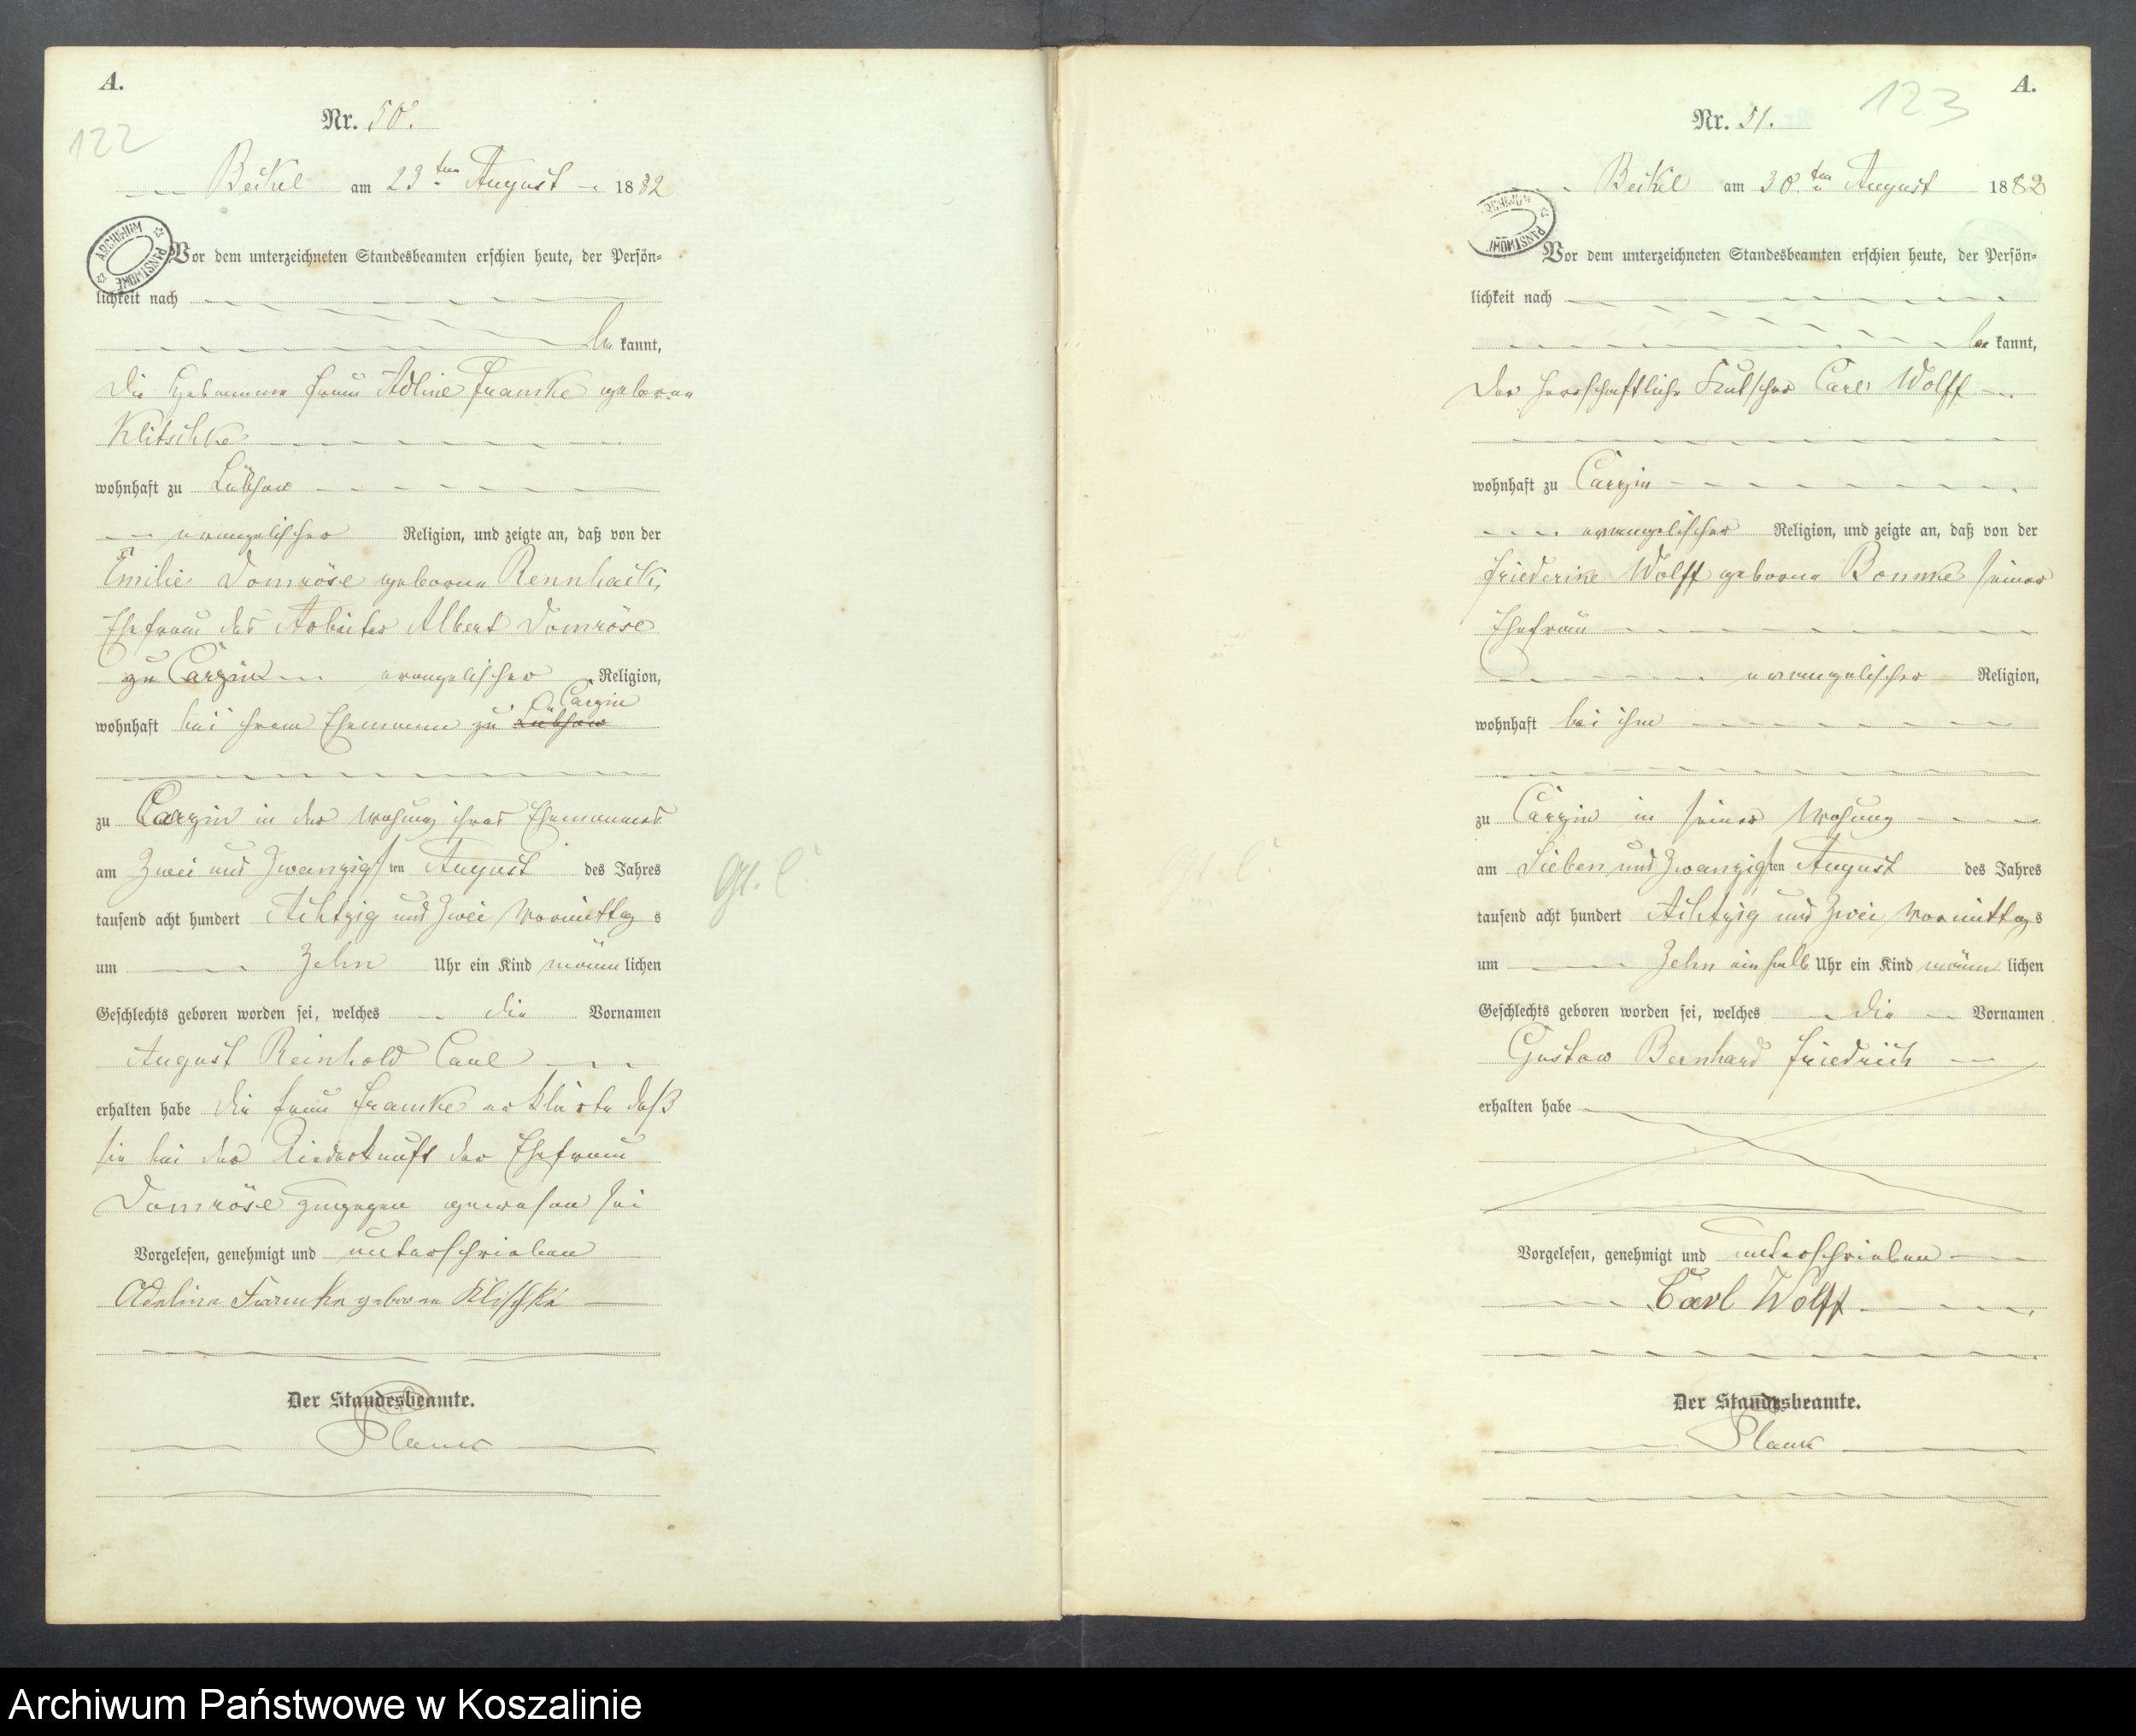 A.
122
Nr. 50.
Beikel am 23ten August 1882
ARCHIWUM PAŃSTWOWE
Vor dem unterzeichneten Standesbeamten erschien heute, der Persön-
lichkeit nach
be kannt,
die Hebamme Frau Adline Framke geborne
Klitschke
wohnhaft zu Lübsow
evangelischer Religion, und zeigte an, daß von der
Emilie Domröse geborne Rennhack,
Ehefrau des Arbeiter Albert Domröse
zu Carzin evangelischer Religion,
wohnhaft bei ihrem Ehemanne zu Lübsow Carzin
zu Carzin in der Wohung ihres Ehemannes
am Zwei und Zwanzigsten August des Jahres
tausend acht hundert Achtzig und Zwei Vormittag s
um Zehn Uhr ein Kind männ lichen
Geschlechts geboren worden sei, welches die Vornamen
August Reinhold Carl
erhalten habe die Frau Framke erklärte daß
sie bei der Niederkunft der Ehefrau
Domröse zugegen gewesen sei
Vorgelesen, genehmigt und unterschrieben
Adeline Framke geboren Klischke
Der Standesbeamte.
Planck
A.
123
Nr. 51.
Beikel am 30.ten August 1882
ARCHIWUM PAŃSTWOWE
Vor dem unterzeichneten Standesbeamten erschien heute, der Persön-
lichkeit nach
be kannt,
der herschaftliche Kutscher Carl Wolff
wohnhaft zu Carzin
evangelischer Religion, und zeigte an, daß von der
Friederike Wolff geborne Bonnke seiner
Ehefrau
evangelischer Religion,
wohnhaft bei ihm
zu Carzin in seiner Wohung
am Sieben und Zwanzigsten August des Jahres
tausend acht hundert Achtzig und Zwei Vormittag s
um Zehn ein halb Uhr ein Kind männ lichen
Geschlechts geboren worden sei, welches die Vornamen
Gustav Bernhard Friedrich
erhalten habe
Vorgelesen, genehmigt und unterschrieben
Carl Wolff
Der Standesbeamte.
Planck
Archiwum Państwowe w Koszalinie